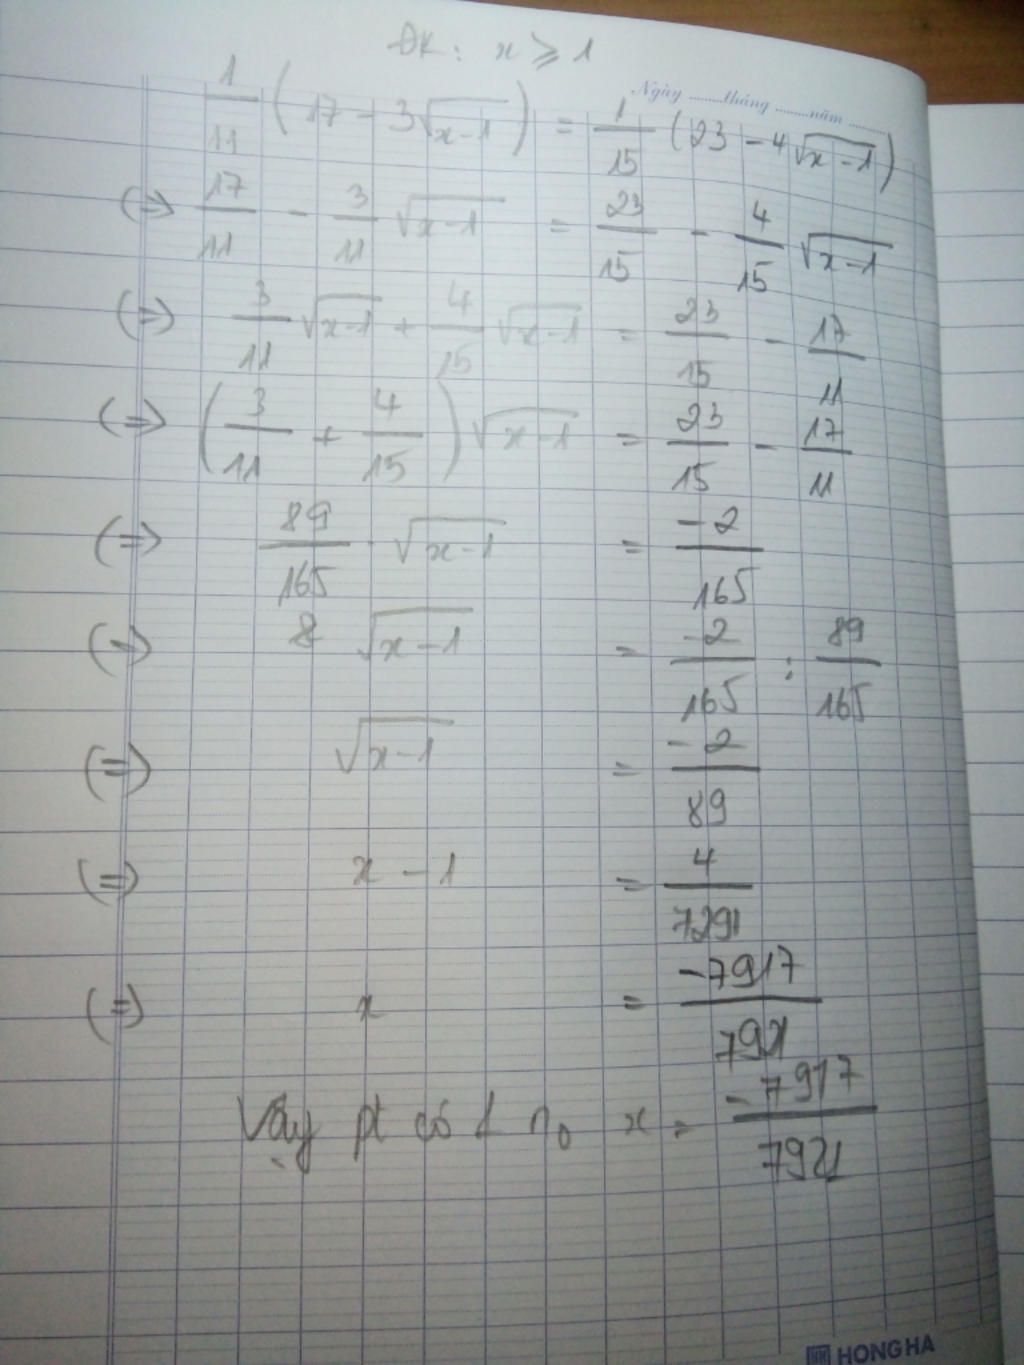 ĐK: x ≥ 1
Ngày ........tháng ........năm ........
1/11 (17 - 3√(x-1)) = 1/15 (23 - 4√(x-1))
(=) 17/11 - 3/11 √(x-1) = 23/15 - 4/15 √(x-1)
(=) 3/11 √(x-1) + 4/15 √(x-1) = 23/15 - 17/11
(=) (3/11 + 4/15) √(x-1) = 23/15 - 17/11
(=) 89/165 · √(x-1) = -2/165
(=) √(x-1) = -2/165 : 89/165
(=) √(x-1) = -2/89
(=) x - 1 = 4/7291
(=) x = -7917/7921
Vậy pt có 1 n0 x = -7917/7921
HONG HA